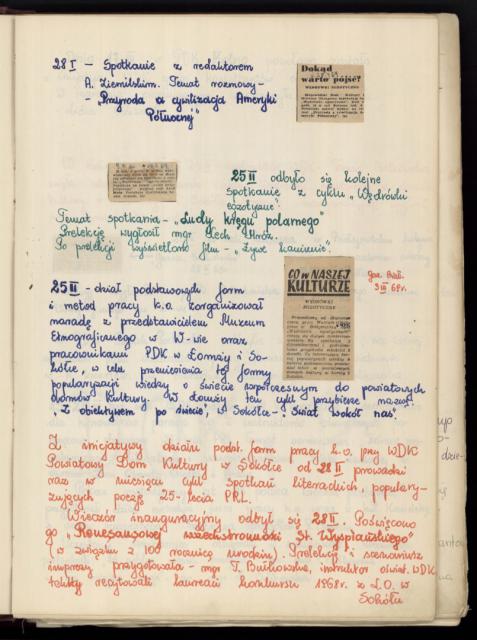 28 I – Spotkanie z redaktorem
A. Ziemilskim. Temat rozmowy –
– "Przyroda a cywilizacja Ameryki
Północnej"
Dokąd
warto pójść?
WĘDRÓWKI EGZOTYCZNE
25 II odbyło się kolejne
spotkanie z cyklu "Wędrówki
egzotyczne".
Temat spotkania – "Ludy kręgu polarnego"
Prelekcję wygłosił mgr Lech Mróz.
Po prelekcji wyświetlono film – "Żywe kamienie".
CO w NASZEJ
KULTURZE
WĘDRÓWKI
EGZOTYCZNE
Gaz. Biał.
3 III 69r.
25 II – dział podstawowych form
i metod pracy k.o. zorganizował
naradę z przedstawicielem Muzeum
Etnograficznego w W-wie oraz
pracownikami PDK w Łomży i So-
kółce, w celu przeniesienia tej formy
popularyzacji wiedzy o świecie współczesnym do powiatowych
domów kultury. W Łomży ten cykl przybierze nazwę
"Z obiektywem po świecie", w Sokółce – "Świat wokół nas".
Z inicjatywy działu podst. form pracy k.o. przy WDK
Powiatowy Dom Kultury w Sokółce od 28 II prowadzi
raz w miesiącu cykl spotkań literackich, popularyzujących
poezję 25-lecia PRL.
Wieczór inauguracyjny odbył się 28 II. Poświęcono
go "Renesansowej wszechstronności St. Wyspiańskiego"
(w związku z 100 rocznicą urodzin). Prelekcję i scenariusz
imprezy przygotowała – mgr T. Butkowska, instruktor oświat. WDK
teksty recytowali laureaci konkursu 1968r. z L.O. w
Sokółce